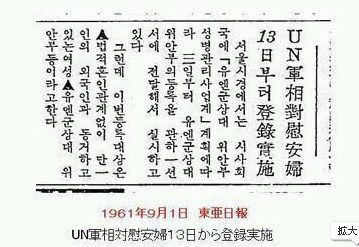 UN軍相對慰安婦
13日부터登錄實施
서울시경에서는 시사회
국에 「유엔군상대 위안부
성병관리사업계」계획에따
라 三일부터 유엔군상대
위안부의등록을 관하一선
서에 전달해서 실시하고
있다
그런데 이번등록대상은
▲법적혼인관계없이 만一
인의 외국인과 동거하고
있는여성▲유엔군상대 위
안부등이라고한다
1961年9月1日 東亜日報
UN軍相対慰安婦13日から登録実施
拡大